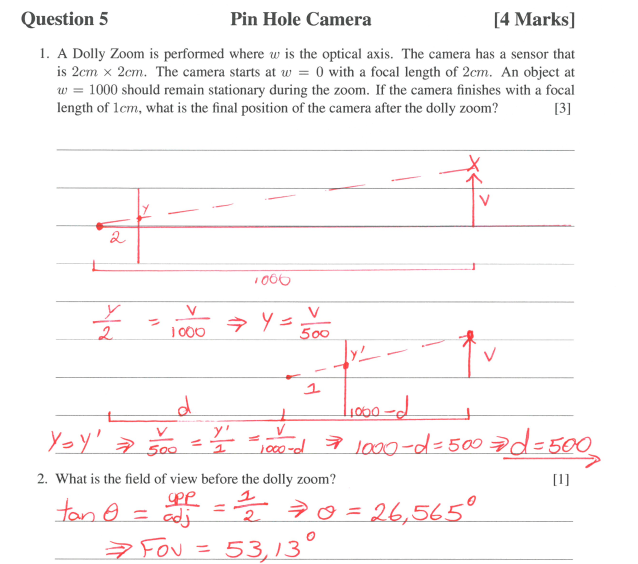 Question 5 Pin Hole Camera [4 Marks]
1. A Dolly Zoom is performed where w is the optical axis. The camera has a sensor that
is 2cm × 2cm. The camera starts at w = 0 with a focal length of 2cm. An object at
w = 1000 should remain stationary during the zoom. If the camera finishes with a focal
length of 1cm, what is the final position of the camera after the dolly zoom? [3]
X
y
V
2
1000
y/2 = V/1000 ⇒ y = V/500
y'
V
1
d 1000-d
y=y' ⇒ V/500 = y'/1 = V/1000-d ⇒ 1000-d=500 ⇒ d=500
2. What is the field of view before the dolly zoom? [1]
tan θ = opp/adj = 1/2 ⇒ θ = 26,565°
⇒ FOV = 53,13°